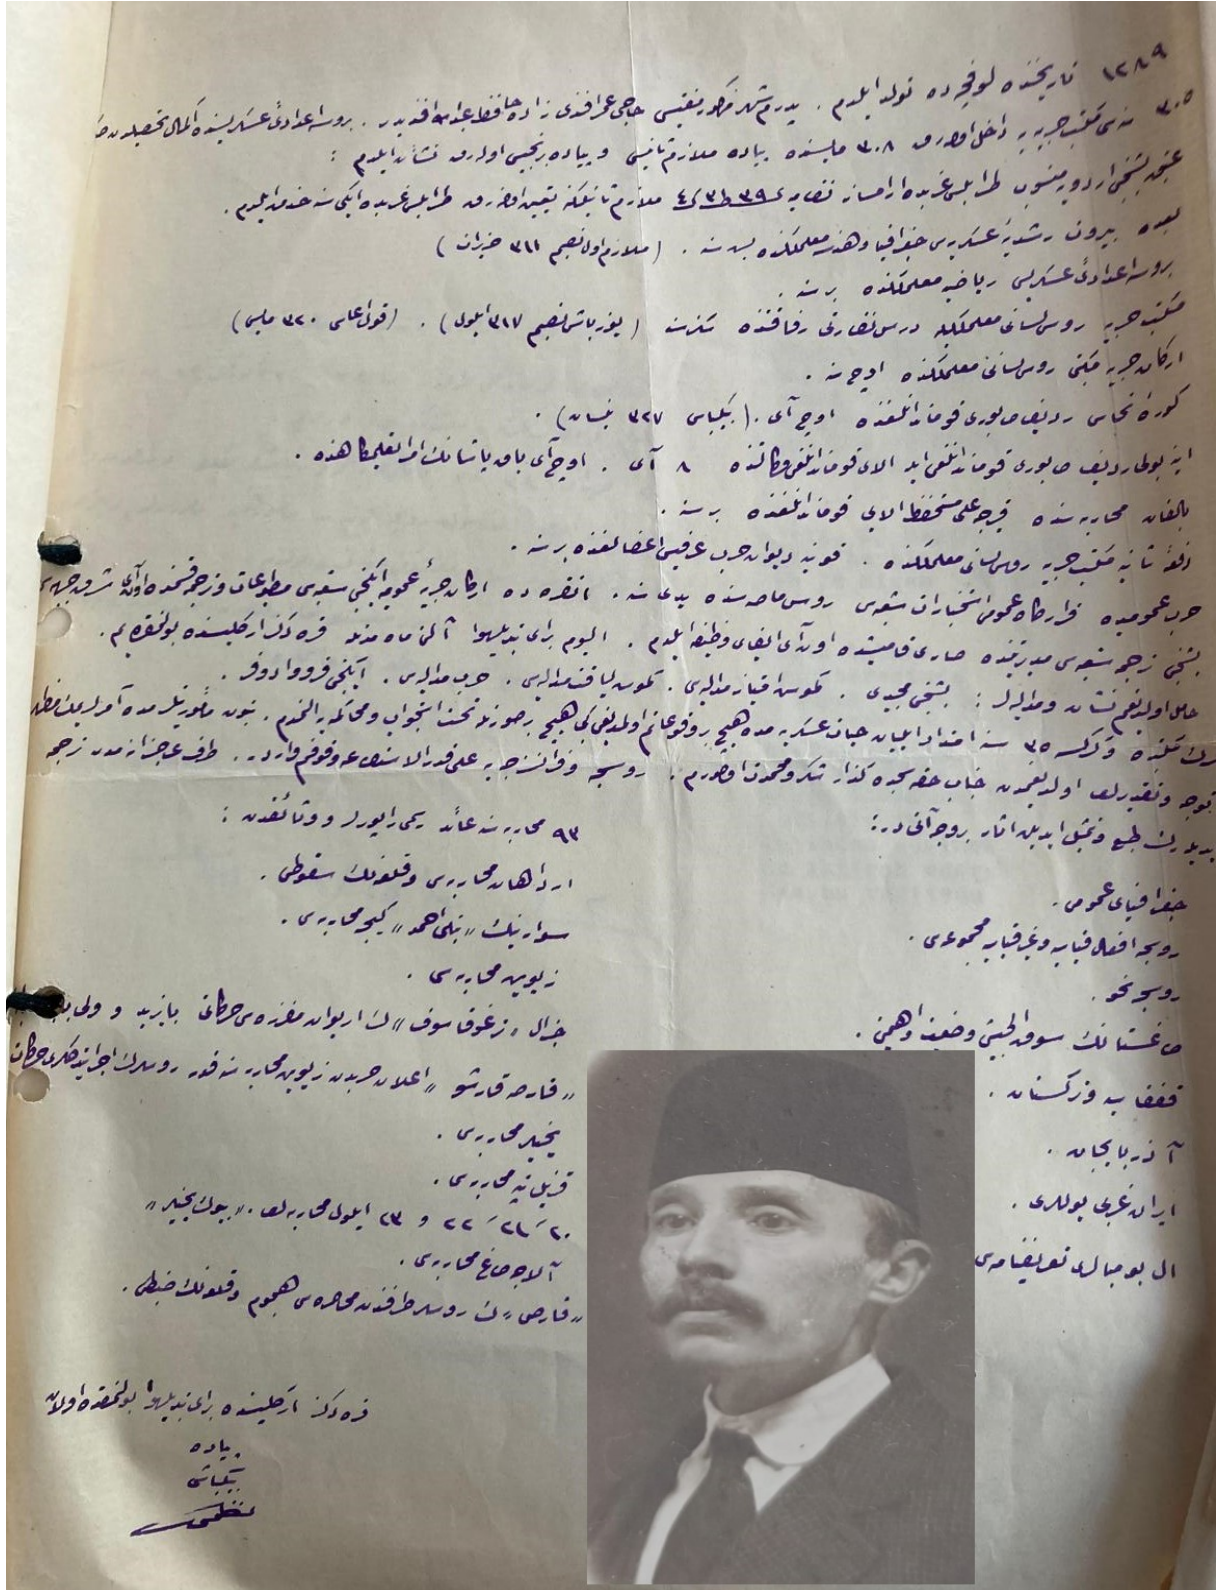 ١٢٨٩ تاريخنده لوفچه ده تولد ايلدم . پدرم شهر مذكور مفتيسى حاجى عمر افندى زاده حافظ عبدالله افنديدر . بروسه اعدادئ عسكريسنده اكمال تحصيلدن
٣٠٥ سنه سى مكتب حربيه يه داخل اوله رق ٣٠٨ مارسنده پياده ملازم ثانيسى و پياده برنجيسى اوله رق نشأت ايلدم :
بشنجى اردويه منسوب طرابلس غربده ٣٩ ملازم ثانيلكنه تعيين اوله رق طرابلس غربده ايكى سنه خدمت ايلدم .
بعده بيروت رشديۀ عسكريه سى جغرافيا و هندسه معلملكنده بش سنه . ( ملازم اول نصبم ٣١١ حزيران )
بروسه اعدادئ عسكريسى رياضيه معلملكنده بر سنه .
مكتب حربيه روس لسانى معلملكيله درس نظارتى رفاقتنده سكز سنه ( يوزباشى نصبم ٣١٧ ايلول ) . ( قول اغاسى ٣٢٠ مارس )
اركان حربيه مكتبى روس لسانى معلملكنده اوچ سنه .
كورۀ نحاس رديف طابورى قومندانلغنده اوچ آى . ( بيكباشى ٣٢٧ نيسان ) .
اينه بولى رديف طابورى قومندانلغى ايله آلاى قومندانلغى وكالتنده ٨ آى . اوچ آى ياور پاشانك امرا تعليمكاهنده .
بالقان محاربه سنده قرجه على مستحفظ آلايى قومندانلغنده بر سنه .
دفعۀ ثانيه مكتب حربيه روس لسانى معلملكنده . قونيه ديوان حرب عرفيسى اعضالغنده بر سنه .
حرب عموميده قراركاه عمومى استخبارات شعبه سى روس ماصه سنده يدى سنه . انقره ده اركان حربيۀ عموميه ايكنجى شعبه سى مطبوعات و ترجمه قسمنده اون آى شرق جبهه سى
بشنجى ترجمه شعبه سى مديريتنده صارى قاميشده اون آى ايفاى وظيفه ايلدم . اليوم براى تبديل هوا آلتى ماه مدتله قره دكز اركليسنده بولنمقده يم .
حامل اولديغم نشان و مداليه لر : بشنجى مجيدى . كموش امتياز مداليه سى . كموش لياقت مداليه سى . حرب مداليه سى . ايكنجى فرووادوفر .
٣٥ سنه امتداد ايليان حيات عسكريه مده هيچ بر وقوعاتم اولمديغى كبى هيچ بر صورتله تحت استجواب و محاكمه يه آلنمدم . بتون مأموريتلرمده آمرلريمك مظهر
توجه و تقديرلرى اولديغمدن جناب حقه سجده كذار شكر و محمدت اوله رم . روسجه و فرانسزجه يه على قدر الاستطاعه وقوفم واردر . طرف عاجزانه مدن ترجمه
ايديله رك طبع و تمثيل ايديلن آثار بروجه آتى در :
جغرافياى عمومى .
روسجه افعال قياسيه و غير قياسيه مجموعه سى .
روسجه نحو .
داغستانك سوق الجيشى وضعيت و اهميتى .
قفقاسيه و تركستان .
آذربايجان .
ايران غربى يوللرى .
ال بومبالرى تعريفنامه سى
٩٣ محاربه سنه عائد رسمى راپورلر و وثائقدن :
اردهان محاربه سى و قلعه نك سقوطى .
سوارينك "بكلى احمد" كيجه محاربه سى .
زيوين محاربه سى .
جنرال "ترغوقاسوف" ك اريوان مفرزه سى حركاتى بايزيد و
"قارصه قارشو" اعلان حربدن زيوين محاربه سنه قدر روسلرك اجرا ايتدكلرى حركات
يخنيلر محاربه سى .
قزيل تپه محاربه سى .
٢٠، ٢١، ٢٢ و ٢٣ ايلول محاربه لرى . "بيوك يخنيلر"
آلاجه طاغ محاربه سى .
"قارص" ك روسلر طرفندن محاصره سى هجوم و قلعه نك ضبطى .
قره دكز اركليسنده براى تبديل هوا بولنمقده اولان
پياده
بيكباشى